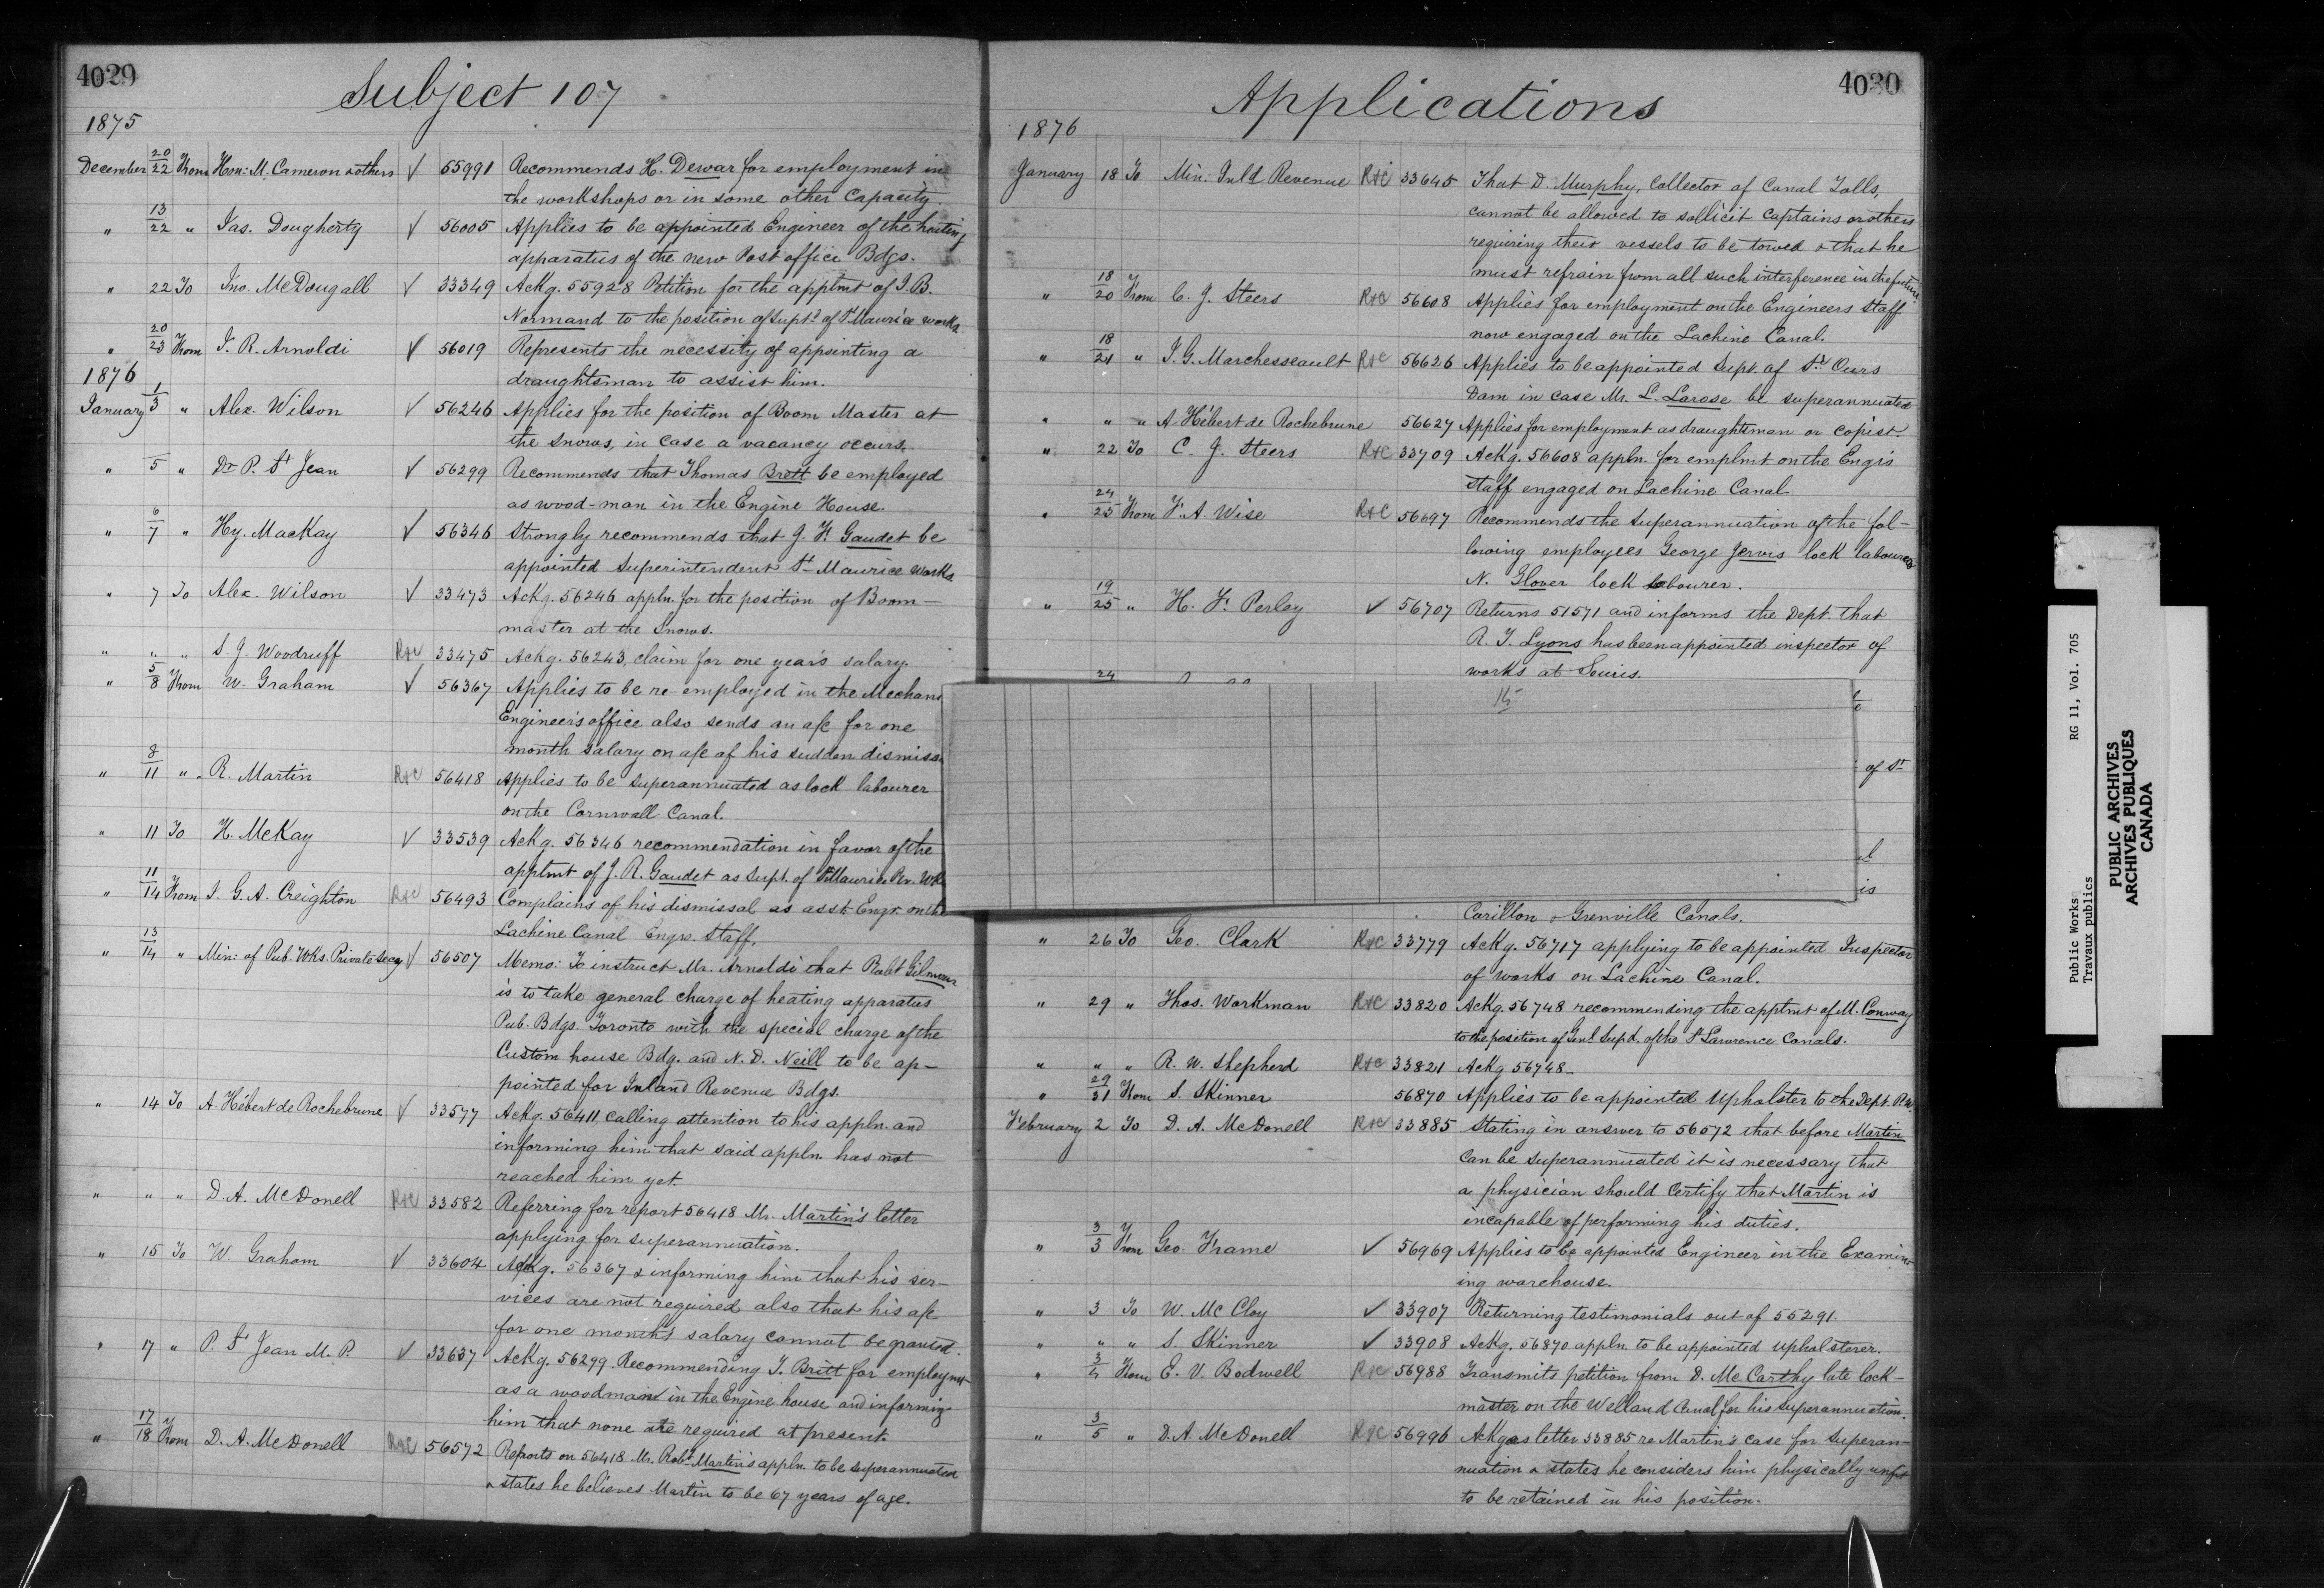 4029
Subject 107
1875
December 20/22 From Hon: M. Cameron & others √ 55991 Recommends H. Dewar for employment in
the workshops or in some other Capacity.
" 13/22 " Jas. Dougherty √ 56005 Applies to be appointed Engineer of the heating
apparatus of the new Post office Bdgs.
" 22 To Jno. McDougall √ 33349 Ackg. 55928 Petition for the apptmt of J.B.
Normand to the position of Supt. of St Maurice works
" 20/23 From J. R. Arnoldi √ 56019 Represents the necessity of appointing a
draughtsman to assist him.
1876
January 1/3 " Alex. Wilson √ 56246 Applies for the position of Boom Master at
the Snows, in case a vacancy occurs.
" 5 " Dr P. St Jean √ 56299 Recommends that Thomas Brett be employed
as wood-man in the Engine House.
" 6/7 " Hy. MacKay √ 56346 Strongly recommends that J. F. Gaudet be
appointed Superintendent St Maurice works
" 7 To Alex. Wilson √ 33473 Ackg. 56246 appln. for the position of Boom-
master at the Snows.
" " " S. J. Woodruff R&C 33475 Ackg. 56243, claim for one year's salary.
" 5/8 From W. Graham √ 56367 Applies to be re-employed in the Mechan
Engineer's office also sends an a/c for one
month salary on a/c of his sudden dismiss
" 8/11 " R. Martin R&C 56418 Applies to be superannuated as lock labourer
on the Cornwall Canal.
" 11 To H. McKay √ 33539 Ackg. 56346 recommendation in favor of the
apptmt of J. R. Gaudet as Supt. of St Maurice Riv. Wks
" 11/14 From J. G. A. Creighton R&C 56493 Complains of his dismissal as asst. Engr. on the
Lachine Canal Engrs. Staff,
" 13/14 " Min: of Pub. Wks. Private Secy √ 56507 Memo: To instruct Mr. Arnoldi that Robt Gilmour
is to take general charge of heating apparatus
Pub. Bdgs. Toronto with the special charge of the
Custom house Bdg. and N. D. Neill to be ap-
pointed for Inland Revenue Bdgs.
" 14 To A. Hébert de Rochebrune √ 33577 Ackg. 56411 calling attention to his appln. and
informing him that said appln. has not
reached him yet.
" " " D. A. McDonell R&C 33582 Referring for report 56418 Mr. Martin's letter
applying for superannuation.
" 15 To W. Graham √ 33604 Ackg. 56367 & informing him that his ser-
vices are not required also that his a/c
for one month's salary cannot be granted.
" 17 " P. St Jean M.P. √ 33637 Ackg. 56299 Recommending T. Britt for employmt
as a woodman in the Engine house and informing
him that none are required at present.
" 17/18 From D. A. McDonell R&C 56572 Reports on 56418 Mr. Robt Martin's appln. to be superannuated
& states he believes Martin to be 67 years of age.
4030
Applications
1876
January 18 To Min: Inld Revenue R&C 33645 That D. Murphy, Collector of Canal Tolls,
cannot be allowed to sollicit Captains or others
requiring their vessels to be towed & that he
must refrain from all such interference in the future
" 18/20 From C. J. Steers R&C 56608 Applies for employment on the Engineers Staff
now engaged on the Lachine Canal.
" 18/21 " J. G. Marchesseault R&C 56626 Applies to be appointed Supt. of St Ours
Dam in case Mr. L. Larose be superannuated
" " " A. Hébert de Rochebrune 56627 Applies for employment as draughtsman or copist.
" 22 To C. J. Steers R&C 33709 Ackg. 56608 appln. for emplmt on the Engrs
Staff engaged on Lachine Canal.
" 24/25 From F. A. Wise R&C 56697 Recommends the Superannuation of the fol-
lowing employees George Jervis lock labourer
N. Glover lock labourer.
" 19/25 " H. F. Perley √ 56707 Returns 51571 and informs the Dept. that
R. T. Lyons has been appointed inspector of
works at Souris.
24
of St
is
Carillon & Grenville Canals.
" 26 To Geo. Clark R&C 33779 Ackg. 56717 applying to be appointed Inspector
of works on Lachine Canal.
" 29 " Thos. Workman R&C 33820 Ackg. 56748 recommending the apptmt of M. Conway
to the position of Genl Supd. of the St Lawrence Canals.
" " " R. W. Shepherd R&C 33821 Ackg 56748-
" 29/31 From S. Skinner 56870 Applies to be appointed Upholster to the Dept. P.W.
February 2 To D. A. McDonell R&C 33885 Stating in answer to 56572 that before Martin
can be superannuated it is necessary that
a physician should Certify that Martin is
incapable of performing his duties.
" 3/3 From Geo. Frame √ 56969 Applies to be appointed Engineer in the Examin-
ing warehouse.
" 3 To W. McCloy √ 33907 Returning testimonials out of 55291.
" " " S. Skinner √ 33908 Ackg. 56870 appln. to be appointed upholsterer.
" 3/4 From E. V. Bodwell R&C 56988 Transmits petition from D. McCarthy late lock-
master on the Welland Canal for his superannuation.
" 3/5 " D. A. McDonell R&C 56996 Ackgs letter 33885 re Martin's case for Superan-
nuation & states he considers him physically unfit
to be retained in his position.
Public Works RG 11, Vol. 705
Travaux publics
PUBLIC ARCHIVES
ARCHIVES PUBLIQUES
CANADA